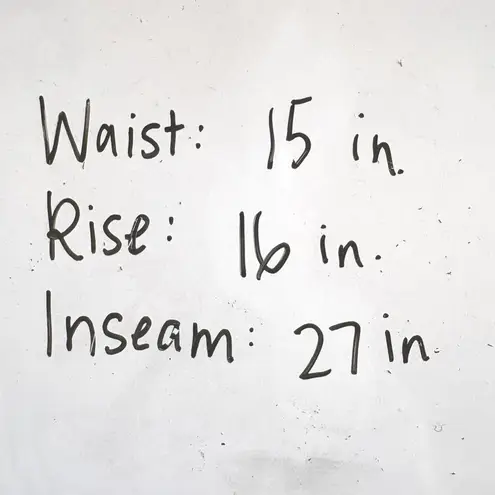 Waist: 15 in.
Rise: 16 in.
Inseam: 27 in.